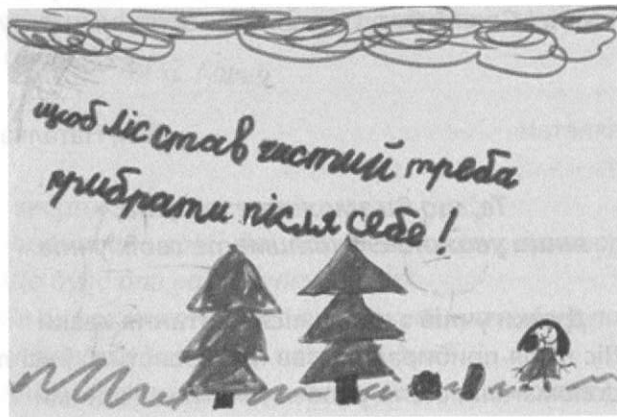 щоб ліс став чистий треба
прибрати після себе!